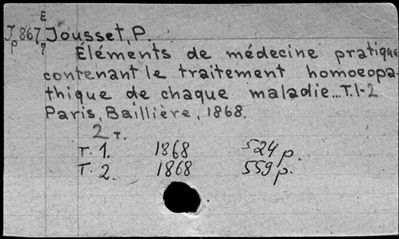 E
J 867 Jousset, P.
p 7
Eléments de médecine pratique
contenant le traitement homoeopa-
thique de chaque maladie...T.1-2
Paris, Baillière, 1868.
2 т.
Т. 1. 1868 524 p.
Т. 2. 1868 559 p.